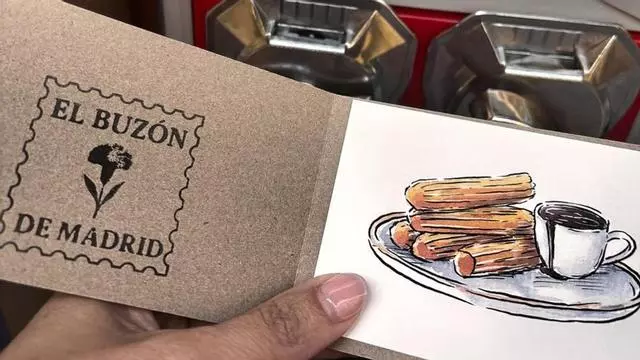 EL BUZÓN
DE MADRID